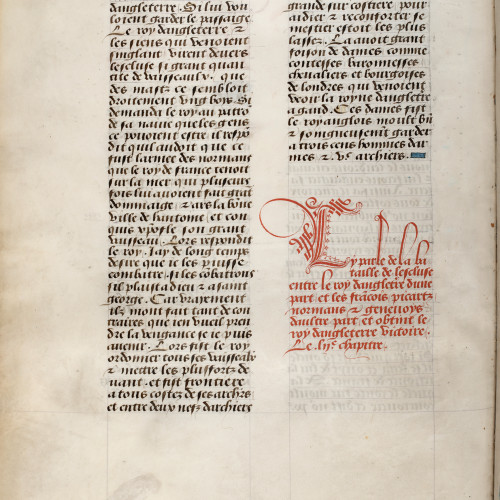 dangleterre. Si lui vou
loient garder le passaige
Le roy dangleterre &
les siens qui venoient
singlant virent devers
lescluse si grant quan
tite de vaisseaulx que
des mastz ce sembloit
droitement vng bois. Si
demanda le roy au patro
de sa naue que les gens
ce pouoient estre il respo
dit quil cuidoit que ce
fust larmee des normans
que le roy de france tenoit
sur la mer qui plusieurs
fois lui auoient fait grat
dommaige & ars la bone
ville de hantonne et con
quis xpofle son grant
vaisseau. Lors respondit
le roy. Jay de long temps
desire que ie les puisse
combatre si les cobattrons
sil plaist a dieu & a saint
george. Car vrayement
ilz mont fait tant de con
traires que ien vueil pren
dre la vengance se ie puis
auenir. Lors fist le roy
ordonner tous ses vaisseaulx
& mettre les plus fors de
uant. et fist frontiere
a tous costez de ses archrs
et entre deux nefz darchiers
grande sur costiere pour
aidier & reconforter se
mestier estoit les plus
lassez. La auoit grant
foison de dames comme
contesses baronnesses
chevaliers et bourgoises
de londres qui venoient
veoir la royne danglettre
a gand. Ces dames fist
le roy anglois moult bn
& songneusement garder
a trois cens hommes dar
mes & vc archiers.
Cy parle de la ba
taille de lescluse
entre le roy dangletre dune
part et les francois picartz
normans & genevoys
daultre part. et obtint le
roy dangleterre victoire.
Le lije chapitre.